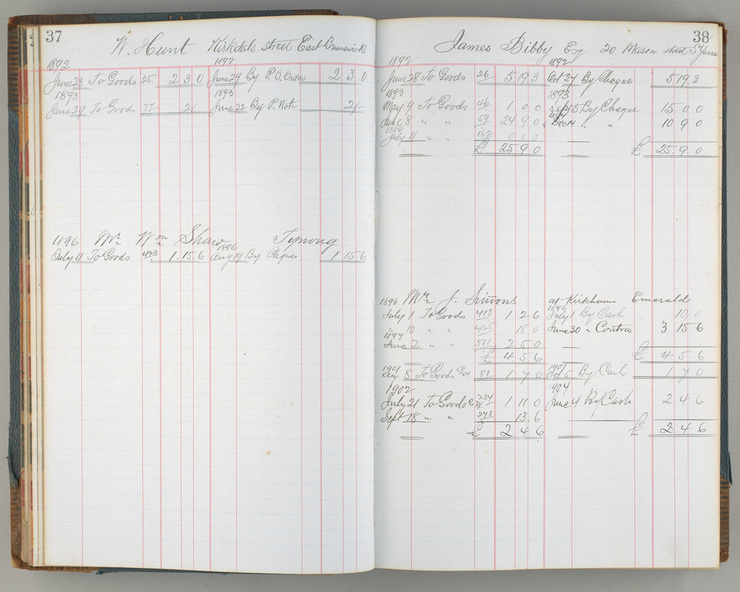 37
W. Hunt Kirkdale Street East Brunswick
1892 1892
June 29 To Goods 25 2 3 0 June 29 By P.O. Order 2 3 0
1893 1893
June 20 To Goods 77 2/ June 22 By P. Note 2/
1896 Mr Wm Shaw Tynong
1896
July 11 To Goods 473 1 15 6 Aug 19 By Cheque 1 15 6
38
James Bibby Esq 20 Mason Street S Yarra
1892 1892
June 28 To Goods 26 5 19 3 Oct 27 By Cheque 5 19 3
1893 1893
May 9 To Goods 46 1 0 0 By Cheque 15 0 0
June 8 " " 59 24 9 0 Dec 14 " " 10 9 0
July 11 " "
£ 25 9 0 £ 25 9 0
1896 Mr J. Simons at Kirkhams Emerald
1896
July 1 To Goods 413 1 2 6 July 1 By Cash 10 0
10 " " 18 0 June 30 " Contras 3 15 6
1897
June 2 " 2 5 0
£ 4 5 6 £ 4 5 6
1901 1901
Aug 8 To Goods 51 1 7 0 Oct 5 By Cash 1 7 0
1902 1904
July 21 To Goods 234 1 11 0 June 4 By Cash 2 4 6
Sept 18 " " 273 13 6
£ 2 4 6 £ 2 4 6